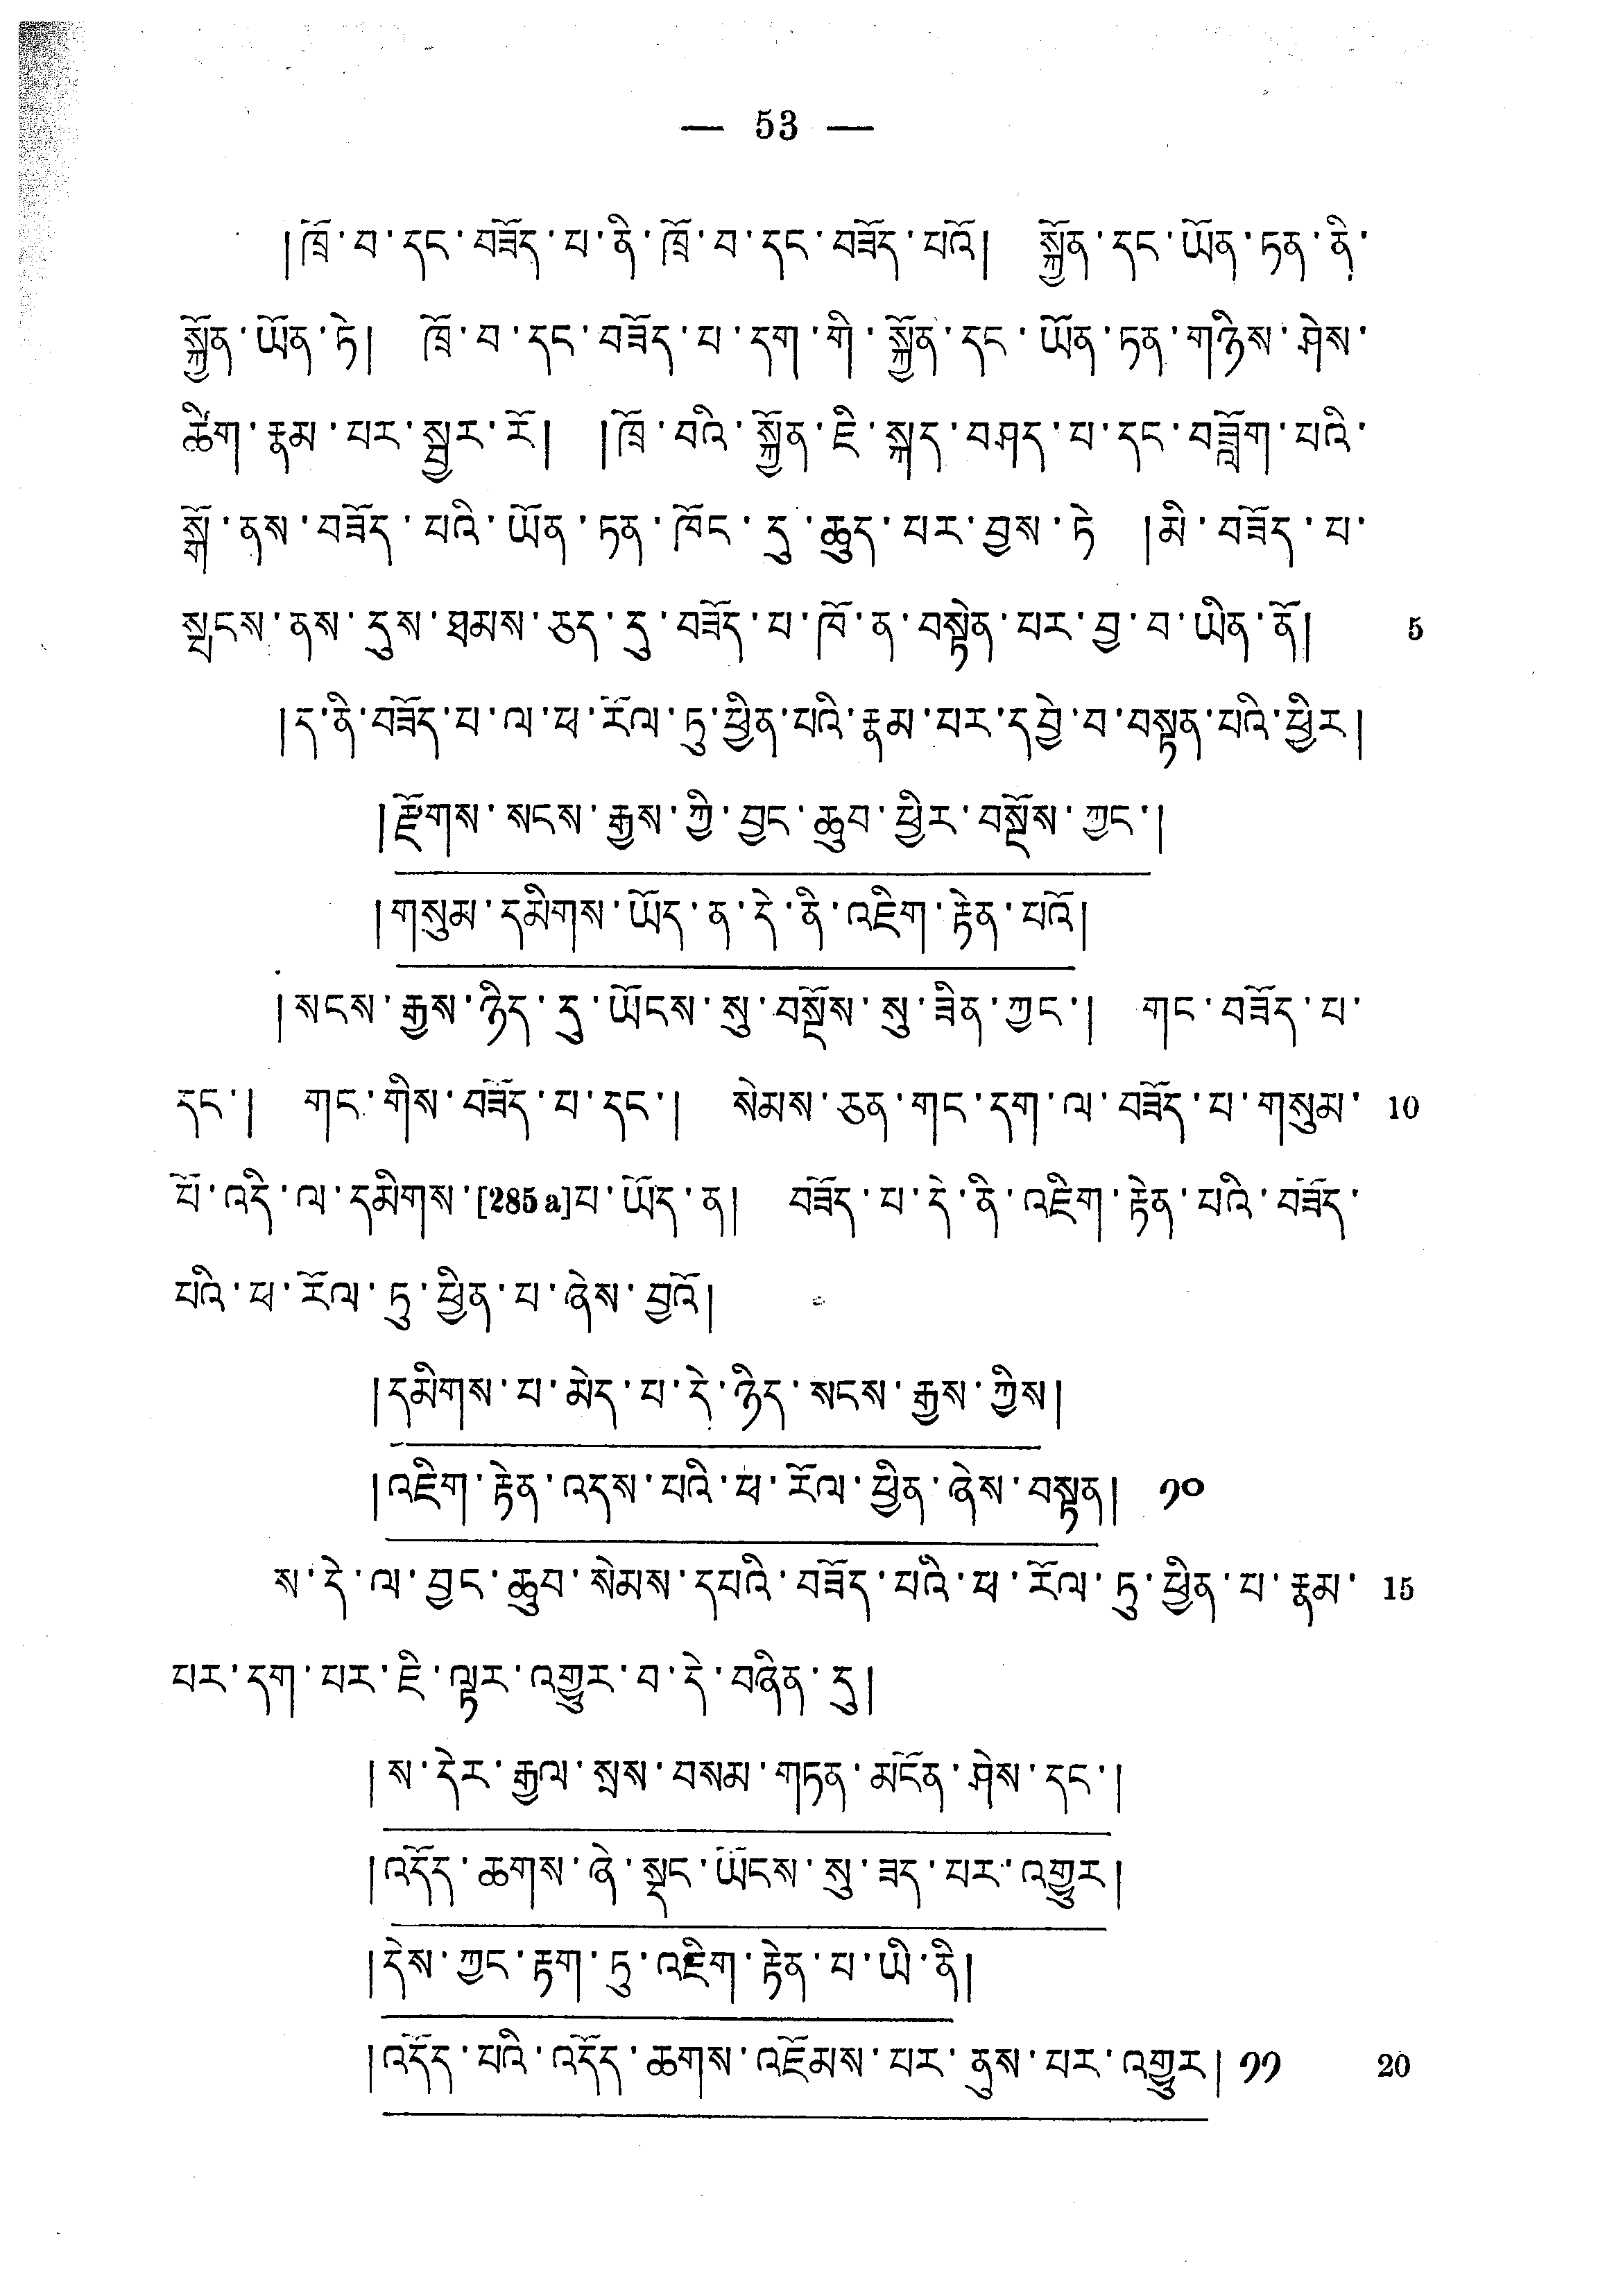 — 53 —
།ཁྲོ་བ་དང་བཟོད་པ་ནི་ཁྲོ་བ་དང་བཟོད་པའོ། སྐྱོན་དང་ཡོན་ཏན་ནི་
སྐྱོན་ཡོན་ཏེ། ཁྲོ་བ་དང་བཟོད་པ་དག་གི་སྐྱོན་དང་ཡོན་ཏན་གཉིས་ཤེས་
ཚིག་རྣམ་པར་སྦྱར་རོ། །ཁྲོ་བའི་སྐྱོན་ཇི་སྐད་བཤད་པ་དང་བཟློག་པའི་
སྒོ་ནས་བཟོད་པའི་ཡོན་ཏན་ཁོང་དུ་ཆུད་པར་བྱས་ཏེ །མི་བཟོད་པ་
སྤངས་ནས་དུས་ཐམས་ཅད་དུ་བཟོད་པ་ཁོ་ན་བསྟེན་པར་བྱ་བ་ཡིན་ནོ། 5
།ད་ནི་བཟོད་པ་ལ་ཕ་རོལ་ཏུ་ཕྱིན་པའི་རྣམ་པར་དབྱེ་བ་བསྟན་པའི་ཕྱིར།
།རྫོགས་སངས་རྒྱས་ཀྱི་བྱང་ཆུབ་ཕྱིར་བསྔོས་ཀྱང་།
།གསུམ་དམིགས་ཡོད་ན་དེ་ནི་འཇིག་རྟེན་པའོ།
།སངས་རྒྱས་ཉིད་དུ་ཡོངས་སུ་བསྔོས་སུ་ཟིན་ཀྱང་། གང་བཟོད་པ་
དང་། གང་གིས་བཟོད་པ་དང་། སེམས་ཅན་གང་དག་ལ་བཟོད་པ་གསུམ་ 10
པོ་འདི་ལ་དམིགས་[285a]པ་ཡོད་ན། བཟོད་པ་དེ་ནི་འཇིག་རྟེན་པའི་བཟོད་
པའི་ཕ་རོལ་ཏུ་ཕྱིན་པ་ཞེས་བྱའོ།
།དམིགས་པ་མེད་པ་དེ་ཉིད་སངས་རྒྱས་ཀྱིས།
།འཇིག་རྟེན་འདས་པའི་ཕ་རོལ་ཕྱིན་ཞེས་བསྟན། ༡༠
ས་དེ་ལ་བྱང་ཆུབ་སེམས་དཔའི་བཟོད་པའི་ཕ་རོལ་ཏུ་ཕྱིན་པ་རྣམ་ 15
པར་དག་པར་ཇི་ལྟར་འགྱུར་བ་དེ་བཞིན་དུ།
།ས་དེར་རྒྱལ་སྲས་བསམ་གཏན་མངོན་ཤེས་དང་།
།འདོད་ཆགས་ཞེ་སྡང་ཡོངས་སུ་ཟད་པར་འགྱུར།
།དེས་ཀྱང་རྟག་ཏུ་འཇིག་རྟེན་པ་ཡི་ནི།
།འདོད་པའི་འདོད་ཆགས་འཇོམས་པར་ནུས་པར་འགྱུར། ༡༡ 20